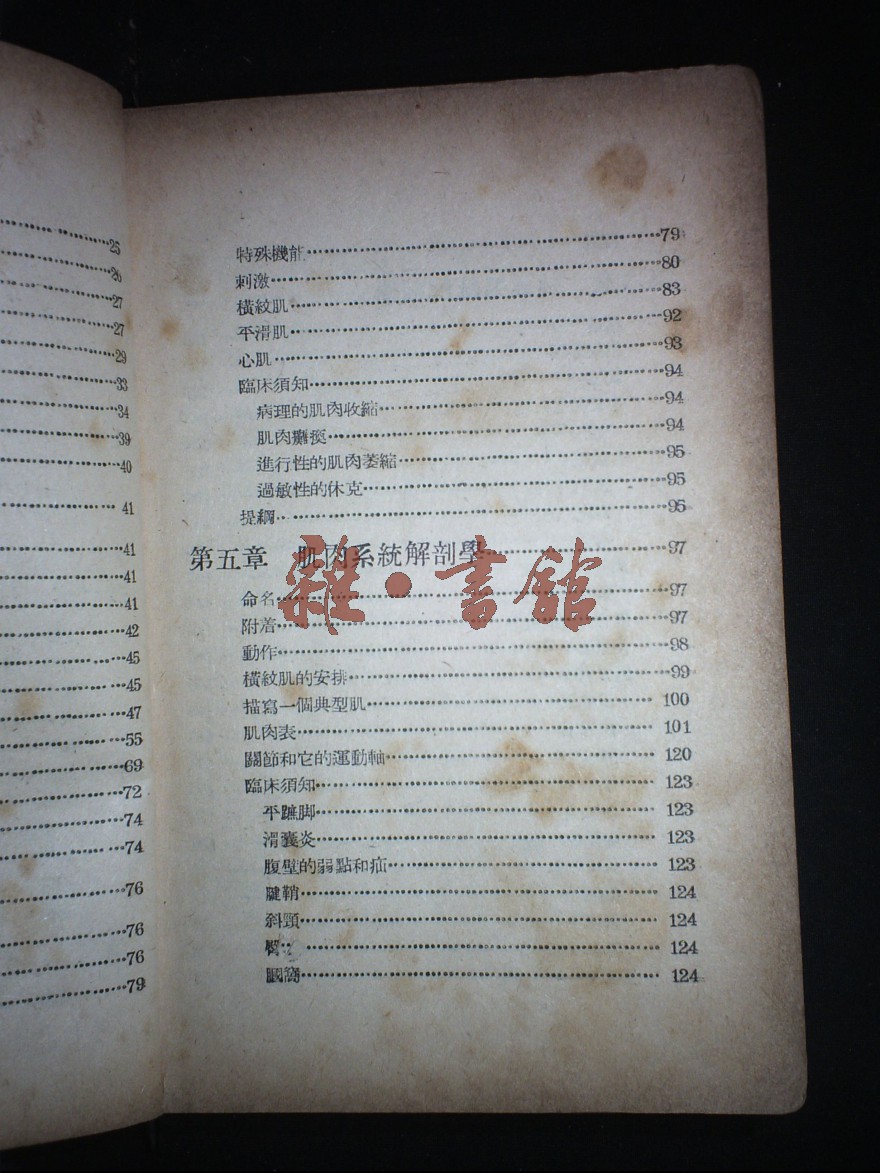 25
26
27
27
29
33
34
39
40
41
41
41
41
42
45
45
47
55
69
72
74
74
76
76
76
79
特殊機能……79
刺激……80
橫紋肌……83
平滑肌……92
心肌……93
臨床須知……94
病理的肌肉收縮……94
肌肉癱瘓……94
進行性的肌肉萎縮……95
過敏性的休克……95
提綱……95
第五章 肌肉系統解剖學……97
命名……97
附着……97
動作……98
橫紋肌的安排……99
描寫一個典型肌……100
肌肉表……101
關節和它的運動軸……120
臨床須知……123
平蹠脚……123
滑囊炎……123
腹壁的弱點和疝……123
腱鞘……124
斜頸……124
臀……124
膕窩……124
雜·書館